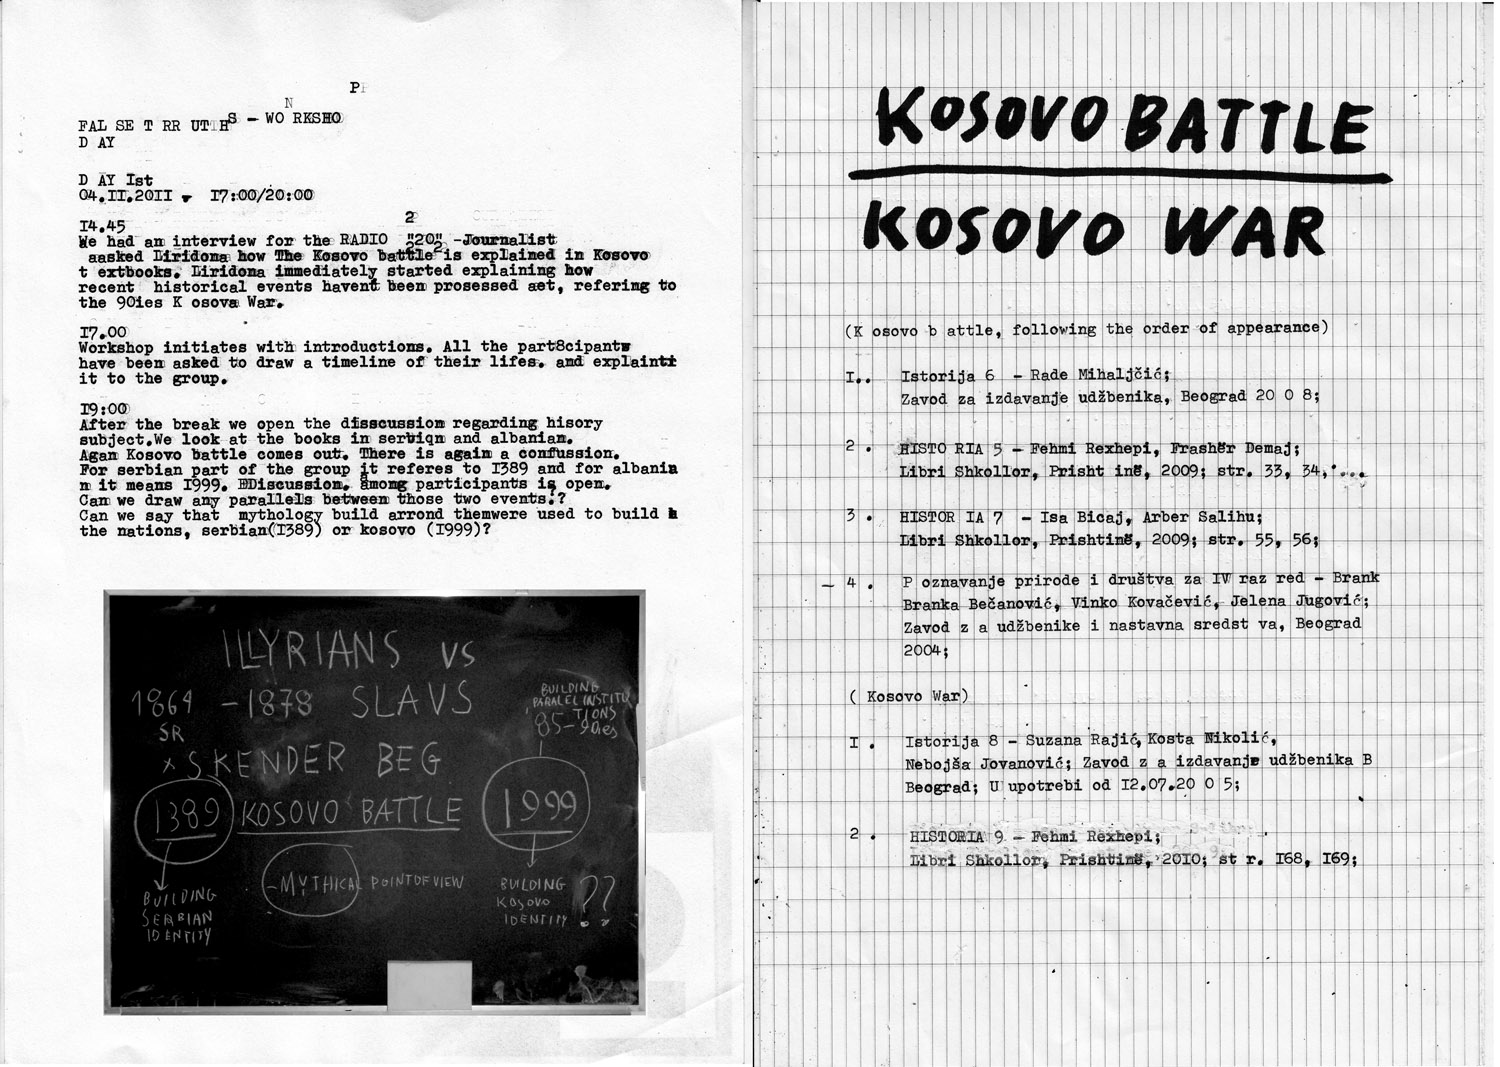 P
N
FAL SE T RR UT HS - WO RKSHO
D AY
D AY Ist
04.II.20II - I7:00/20:00
I4.45
We had an interview for the RADIO "202" -Journalist
aasked Liridona how The Kosovo battle is explained in Kosovo
t extbooks. Liridona immediately started explaining how
recent historical events havent been prosessed aet, refering to
the 90ies K osova War.
I7.00
Workshop initiates with introductions. All the part8cipants
have been asked to draw a timeline of their lifes. and explaint
it to the group.
I9:00
After the break we open the disscussion regarding hisory
subject.We look at the books in serbiqn and albanian.
Agan Kosovo battle comes out. There is again a confussion.
For serbian part of the group it referes to I389 and for albania
n it means I999. Discussion. among participants is open.
Can we draw any parallels between those two events.?
Can we say that mythology build arrond themwere used to build
the nations, serbian(I389) or kosovo (I999)?
ILLYRIANS VS
1864 - 1878 SLAVS
SR
BUILDING
PARALEL INSTITU
TIONS
85-90ies
x SKENDER BEG
1389 KOSOVO BATTLE 1999
- MYTHICAL POINT OF VIEW
BUILDING
SERBIAN
IDENTITY
BUILDING
KOSOVO
IDENTITY ??
KOSOVO BATTLE
KOSOVO WAR
(K osovo b attle, following the order of appearance)
I.. Istorija 6 - Rade Mihaljčić;
Zavod za izdavanje udžbenika, Beograd 20 0 8;
2 . HISTO RIA 5 - Fehmi Rexhepi, Frashër Demaj;
Libri Shkollor, Prisht inë, 2009; str. 33, 34,....
3 . HISTOR IA 7 - Isa Bicaj, Arber Salihu;
Libri Shkollor, Prishtinë, 2009; str. 55, 56;
- 4 . P oznavanje prirode i društva za IV raz red - Brank
Branka Bečanović, Vinko Kovačević, Jelena Jugović;
Zavod z a udžbenike i nastavna sredst va, Beograd
2004;
( Kosovo War)
I . Istorija 8 - Suzana Rajić, Kosta Nikolić,
Nebojša Jovanović; Zavod z a izdavanje udžbenika B
Beograd; U upotrebi od I2.07.20 0 5;
2 . HISTORIA 9 - Fehmi Rexhepi;
Libri Shkollor, Prishtinë, 2010; st r. I68, I69;